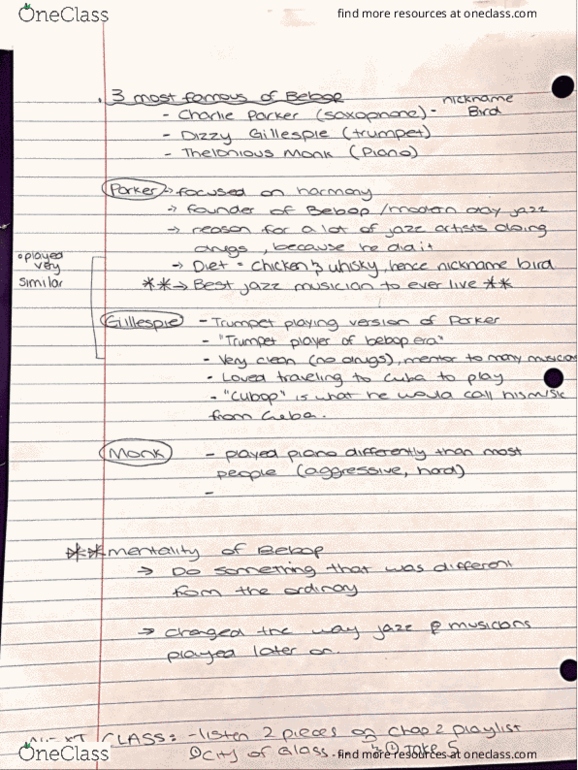 OneClass
find more resources at oneclass.com
3 most famous of Bebop
- Charlie Parker (saxophone) - nickname Bird
- Dizzy Gillespie (trumpet)
- Thelonious Monk (Piano)
Parker → focused on harmony
→ founder of Bebop /modern day jazz
→ reason for a lot of jazz artists doing
drugs, because he did it
→ Diet = chicken & whisky, hence nickname bird
**→ Best jazz musician to ever live **
• played
very
similar
Gillespie - Trumpet playing version of Parker
- "Trumpet player of bebop era"
- Very clean (no drugs), mentor to many
- Loved traveling to Cuba to play
- "Cubop" is what he would call his
from Cuba.
Monk - played piano differently than most
people (aggressive, hard)
-
** mentality of Bebop
→ Do something that was different
from the ordinary
→ changed the way jazz & musicians
played later on.
CLASS: - listen 2 pieces on chap 2 playlist
① City of Glass
OneClass
find more resources at oneclass.com